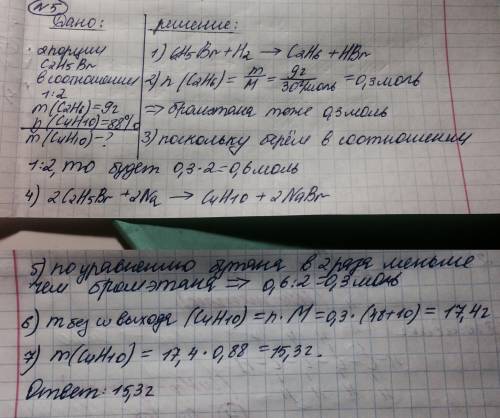 №5
Дано:
2 порции
C2H5Br
в соотношении
1:2
m(C2H6)=9г
η(C4H10)=88%
m(C4H10)-?
решение:
1) C2H5Br+H2 → C2H6+HBr
2) n(C2H6)= m/M = 9г/30г/моль = 0,3моль
⇒ бромэтана тоже 0,3моль
3) поскольку берём в соотношении
1:2, то будет 0,3·2=0,6моль
4) 2C2H5Br+2Na → C4H10+2NaBr
5) по уравнению бутана в 2 раза меньше
чем бромэтана ⇒ 0,6:2=0,3моль
6) m без w выхода (C4H10)=n·M=0,3·(48+10)=17,4г
7) m(C4H10)=17,4·0,88=15,3г.
Ответ: 15,3г